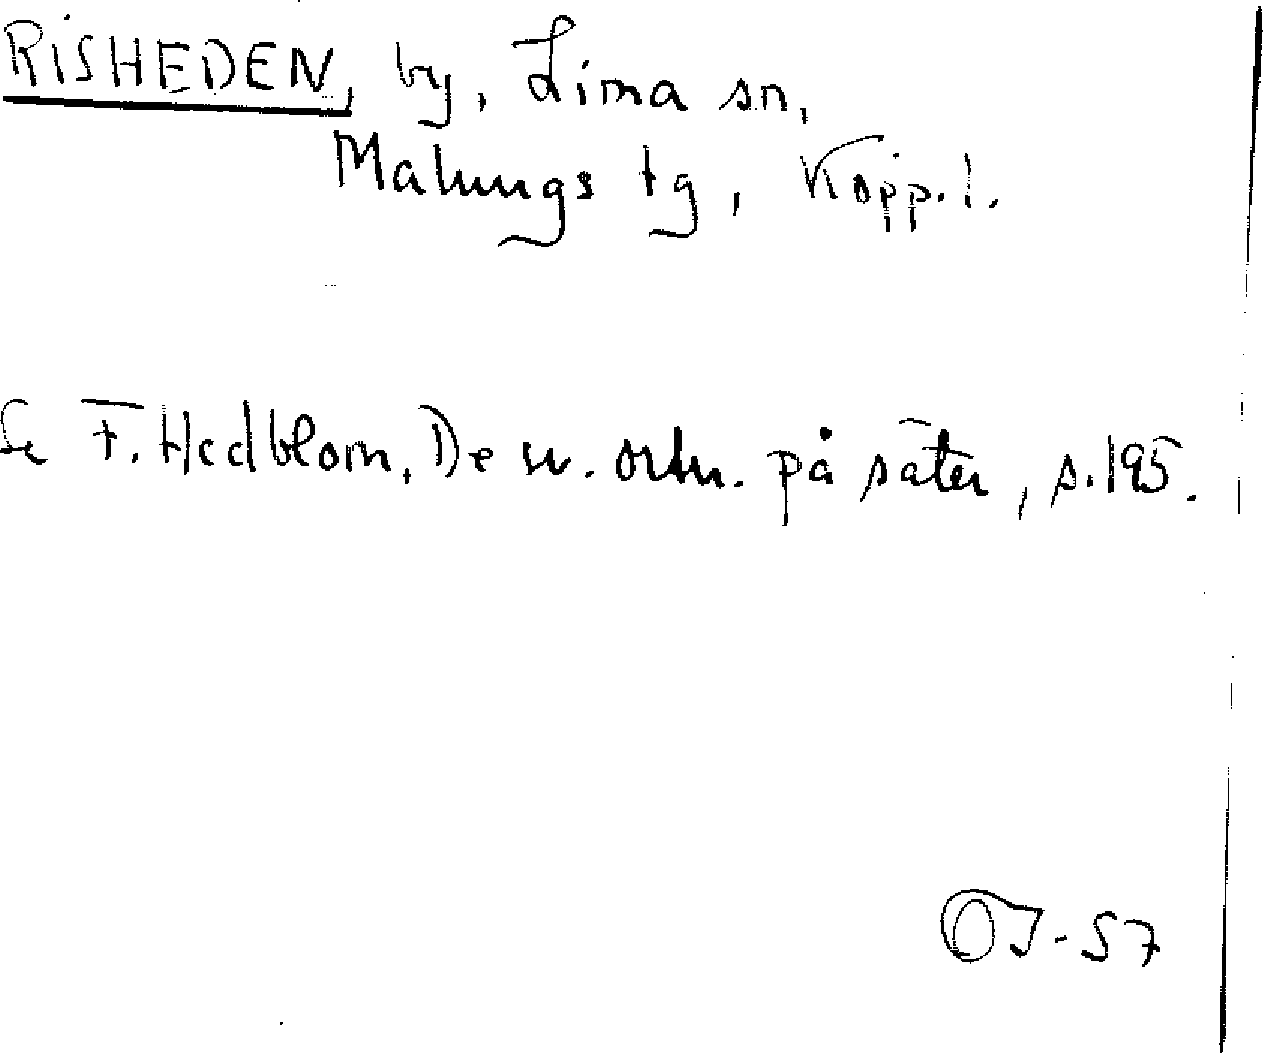 RISHEDEN, by, Lima sn,
Malungs tg, Kopp. l.
Se F. Hedblom, De sv. ortn. på säter, s. 195.
OJ-57